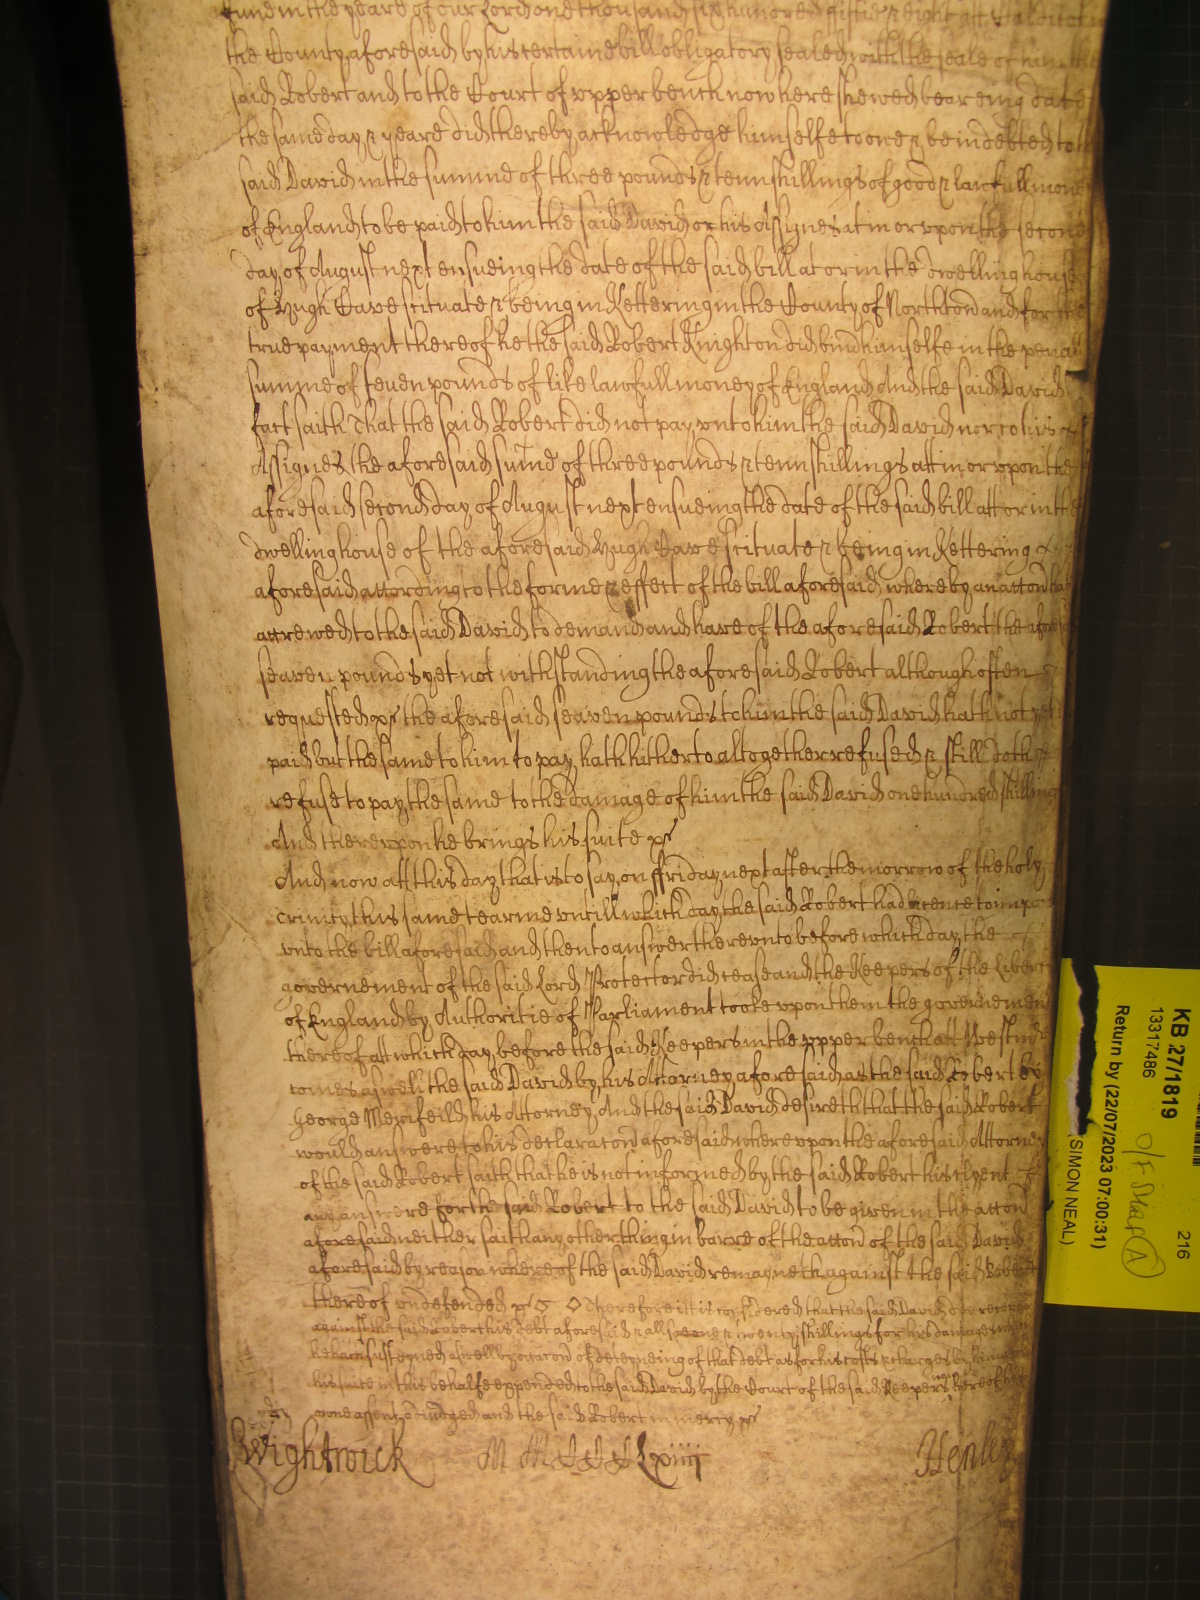 June in the yeare of our Lord one thousand six hundred fiftie & eight att
the County aforesaid by his certaine bill obligatory sealed with the seale of him the
said Robert and to the Court of upper bench now here shewed beareing date
the same day & yeare did thereby acknowledge himselfe to owe & be indebted to
said David in the summe of three pounds & tenn shillings of good & lawfull mone
of England to be paid to him the said David or his Assignes att in or vpon the second
day of August next ensueing the date of the said bill at or in the dwelling house
of Hugh Cave scituate & being in Kettering in the County of Northton and for the
true payment thereof he the said Robert Knighton did bind himselfe in the penal
summe of seven pounds of like lawfull money of England And the said David
fact saith That the said Robert did not pay vnto him the said David nor to his
Assignes the aforesaid sume of three pounds & tenn shillings att in or vpon the
aforesaid second day of August next ensueing the date of the said bill att or in the
dwelling house of the aforesaid Hugh Cave scituate & being in Kettering
aforesaid according to the forme & effect of the bill aforesaid whereby an accon hat
accrewed to the said David to demand and have of the aforesaid Robert the afores
seaven pounds yet not withstanding the aforesaid Robert although often
requested &c the aforesaid seaven pounds to him the said David hath not yet
paid but the same to him to pay hath hitherto altogether refused & still doth
refuse to pay the same to the damage of him the said David one hundred shillings
And therevpon he brings his suite &c
And now att this day that is to say on ffriday next after the morrow of the holy
Trinity this same tearme vntill which day the said Robert had licence to impa
vnto the bill aforesaid and then to answer therevnto before which day the
governement of the said Lord Protector did cease and the Keepers of the Libert
of England by Authoritie of Parliament tooke vpon them the governement
thereof att which day before the said Keepers in the vpper bench att Westm
comes aswell the said David by his Attorney aforesaid as the said Robert by
George Merifeild his Attorney And the said David desireth that the said Robert
would answere to his declaracon aforesaid wherevpon the aforesaid Attorney
of the said Robert saith that he is not informed by the said Robert his Clyent of
any answere for the said Robert to the said David to be given in the accon
aforesaid neither saith any other thing in barre of the accon of the said David
aforesaid by reason whereof the said David remayneth against the said Robert
thereof vndefended &c Therefore itt is considered that the said David doe recover
against the said Robert his debt aforesaid & allsoe one & twenty shillings for his damages which
he hath susteyned aswell by occacon of deteyneing of that debt as for his costs & charges by him about
his suite in this behalfe expended to the said David by the Court of the said Keepers now here of his
owne assent adiudged and the said Robert in mercy &c
Wightwick Lxiiij Henley
KB 27/1819
13317486
216
Return by (22/07/2023 07:00:31)
(SIMON NEAL)